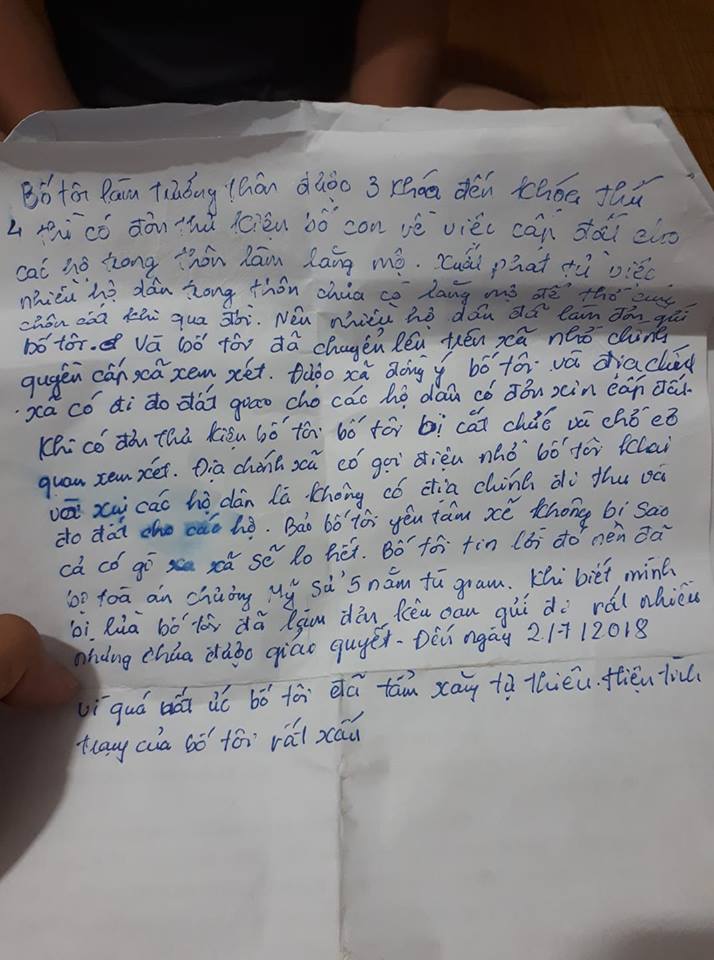 Bố tôi làm trưởng thôn được 3 khóa đến khóa thứ
4 thì có đơn thư kiện bố con về việc cấp đất cho
các hộ trong thôn làm lăng mộ. Xuất phát từ việc
nhiều hộ dân trong thôn chưa có lăng mộ để thờ cúng
chôn cất khi qua đời. Nên nhiều hộ dân đã làm đơn gửi
bố tôi. Và bố tôi đã chuyển lên trên xã nhờ chính
quyền cấp xã xem xét. Được xã đồng ý bố tôi và địa chính
xã có đi đo đất giao cho các hộ dân có đơn xin cấp đất.
Khi có đơn thư kiện bố tôi bố tôi bị cắt chức và chờ cơ
quan xem xét. Địa chính xã có gọi điện nhờ bố tôi khai
với các hộ dân là không có địa chính đi thu và
đo đất cho các hộ. Bảo bố tôi yên tâm xẽ không bị sao
cả có gì xã sẽ lo hết. Bố tôi tin lời đó nên đã
bị toà án chương Mỹ sử 5 năm tù giam. Khi biết mình
bị lừa bố tôi đã làm đơn kêu oan gửi đi rất nhiều
nhưng chưa được giải quyết - Đến ngày 2/7/2018
vì quá uất ức bố tôi đã tẩm xăng tự thiêu. Hiện tình
trạng của bố tôi rất xấu